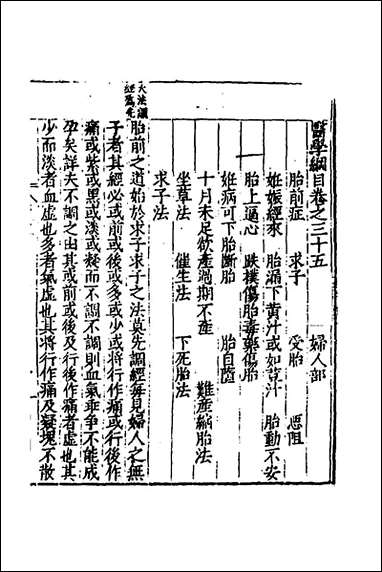 醫學綱目卷之三十五 婦人部
胎前症 求子 受胎 惡阻
妊娠經來 胎漏下黃汁或如荳汁 胎動不安
胎上逼心 跌撲傷胎毒藥傷胎
妊病可下胎斷胎 胎自
十月未足欲產過期不產 難產縮胎法
坐草法 催生法 下死胎法
求子法
大法調
經為先
胎前之道始於求子求子之法莫先調經每見婦人之無
子者其經必或前或後或多或少或將行作痛或行後作
痛或紫或黑或淡或凝而不調不調則血氣乖爭不能成
孕矣詳夫不調之由其或前或後及行後作痛者虛也其
少而淡者血虛也多者氣虛也其將行作痛及凝塊不散